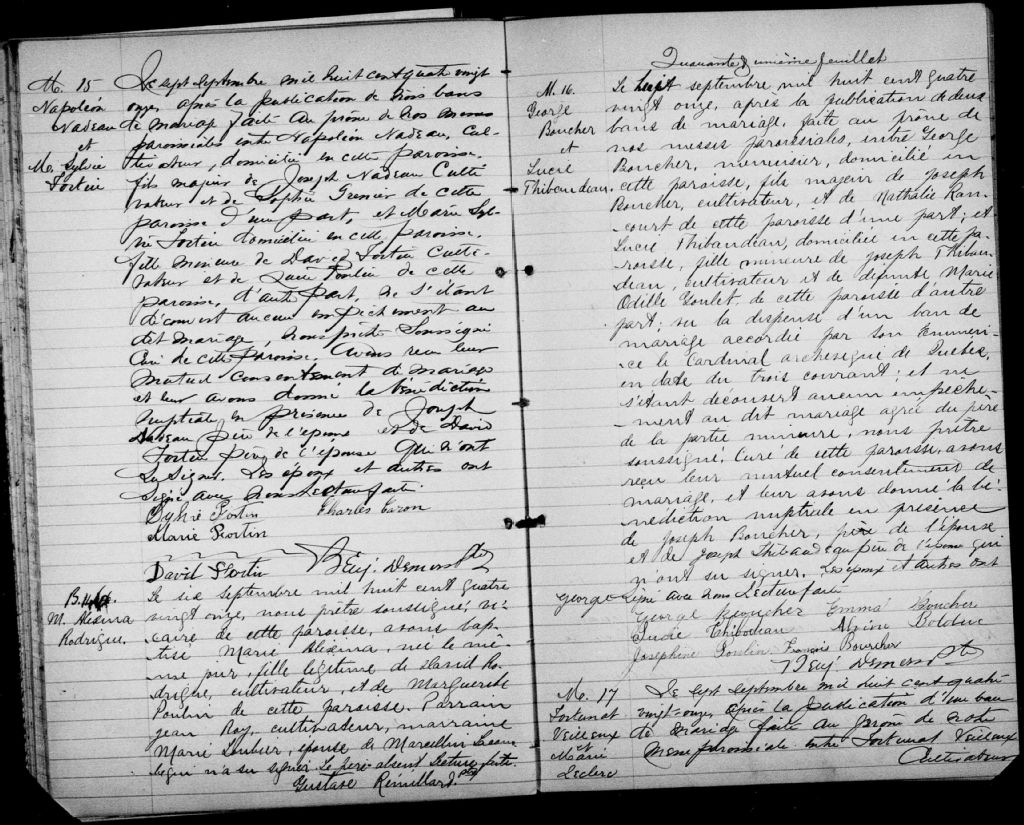 M. 15
Napoléon
Nadeau
et
M. Sylvie
Fortin
Le sept septembre mil huit cent quatre vingt
onze, après la publication de trois bans
de mariage faite au prône de nos messes
paroissiales entre Napoléon Nadeau, Cul-
tivateur, domicilié en cette paroisse,
fils majeur de Joseph Nadeau Culti
vateur et de Sophie Grenier de cette
paroisse d'une part, et Marie Syl-
vie Fortin domiciliée en cette paroisse,
fille mineure de David Fortin Culti-
vateur et de Poulin de cette
paroisse, d'autre part, ne s'étant
découvert aucun empêchement au
dit mariage, nous prêtre soussigné
Curé de cette paroisse, avons reçu leur
mutuel consentement de mariage
et leur avons donné la bénédiction
nuptiale en présence de Joseph
Nadeau père de l'époux et de David
Fortin père de l'épouse qui n'ont
su signer. Les époux et autres ont
signé avec nous lecture faite
Sylvie Fortin Charles Caron
Marie Fortin
David Fortin Benj. Demers Ptre
B.
M. Alexina
Rodrigue.
Le six septembre mil huit cent quatre
vingt onze, nous prêtre soussigné, vi-
caire de cette paroisse, avons bap-
tisé Marie Alexina, née le mê-
me jour, fille légitime de David Ro-
drigue, cultivateur, et de Marguerite
Poulin de cette paroisse. Parrain
jean Roy, cultivateur, marraine
Marie, épouse de Marcellin
lequel n'a su signer. Le père absent Lecture faite.
Gustave Rémillard, ptre
Quarante & unième feuillet
M. 16.
George
Boucher
et
Lucie
Thibaudeau.
Le sept septembre mil huit cent quatre
vingt onze, après la publication de deux
bans de mariage, faite au prône de
nos messes paroissiales, entre George
Boucher, menuisier, domicilié en
cette paroisse, fils majeur de Joseph
Boucher, cultivateur, et de Nathalie Ran-
court de cette paroisse d'une part; et
Lucie Thibaudeau, domiciliée en cette pa-
roisse, fille mineure de joseph Thibau-
deau, cultivateur et de défunte Marie
Odille Goulet, de cette paroisse d'autre
part; vu la dispense d'un ban de
mariage accordée par son Eminen-
ce le Cardinal archevêque de Québec,
en date du trois courant; et ne
s'étant découvert aucun empêche-
ment au dit mariage agréé du père
de la partie mineure, nous prêtre
soussigné, Curé de cette paroisse, avons
reçu leur mutuel consentement de
mariage, et leur avons donné la bé-
nédiction nuptiale en présence
de Joseph Boucher, père de l'épouse
et de Joseph Thibaudeau père de l'épouse qui
n'ont su signer. Les époux et autres ont
George signé avec nous Lecture faite
George Boucher Emma Boucher
Lucie Thibodeau Bolduc
Joséphine Poulin François Boucher
Benj Demers Ptre
M. 17
Fortunat
Veilleux
et
Marie
Leclerc
Le sept septembre mil huit cent quatre
vingt-onze, après la publication d'un ban
de mariage faite au prône de notre
messe paroissiale entre Fortunat Veilleux
Cultivateur